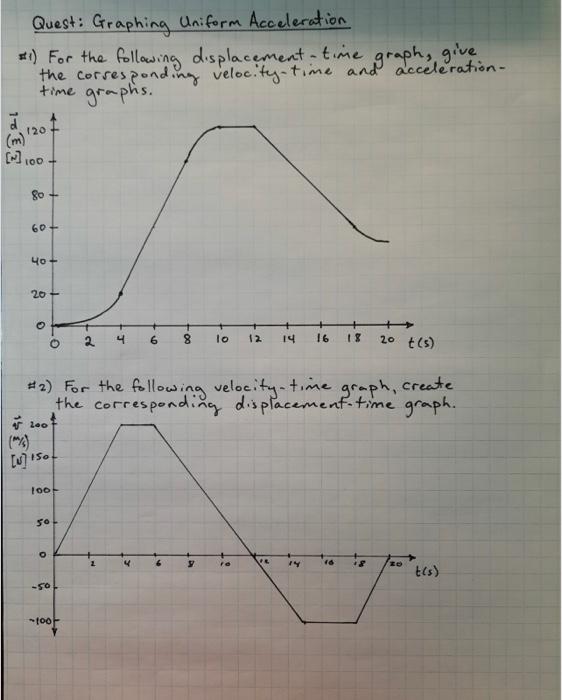 Quest: Graphing Uniform Acceleration
#1) For the following displacement-time graph, give
the corresponding velocity-time and acceleration-
time graphs.
d
(m)
[N]
120
100
80
60
40
20
0
0 2 4 6 8 10 12 14 16 18 20 t(s)
#2) For the following velocity-time graph, create
the corresponding displacement-time graph.
v
(m/s)
[N]
200
150
100
50
0
2 4 6 8 10 12 14 16 18 20 t(s)
-50
-100